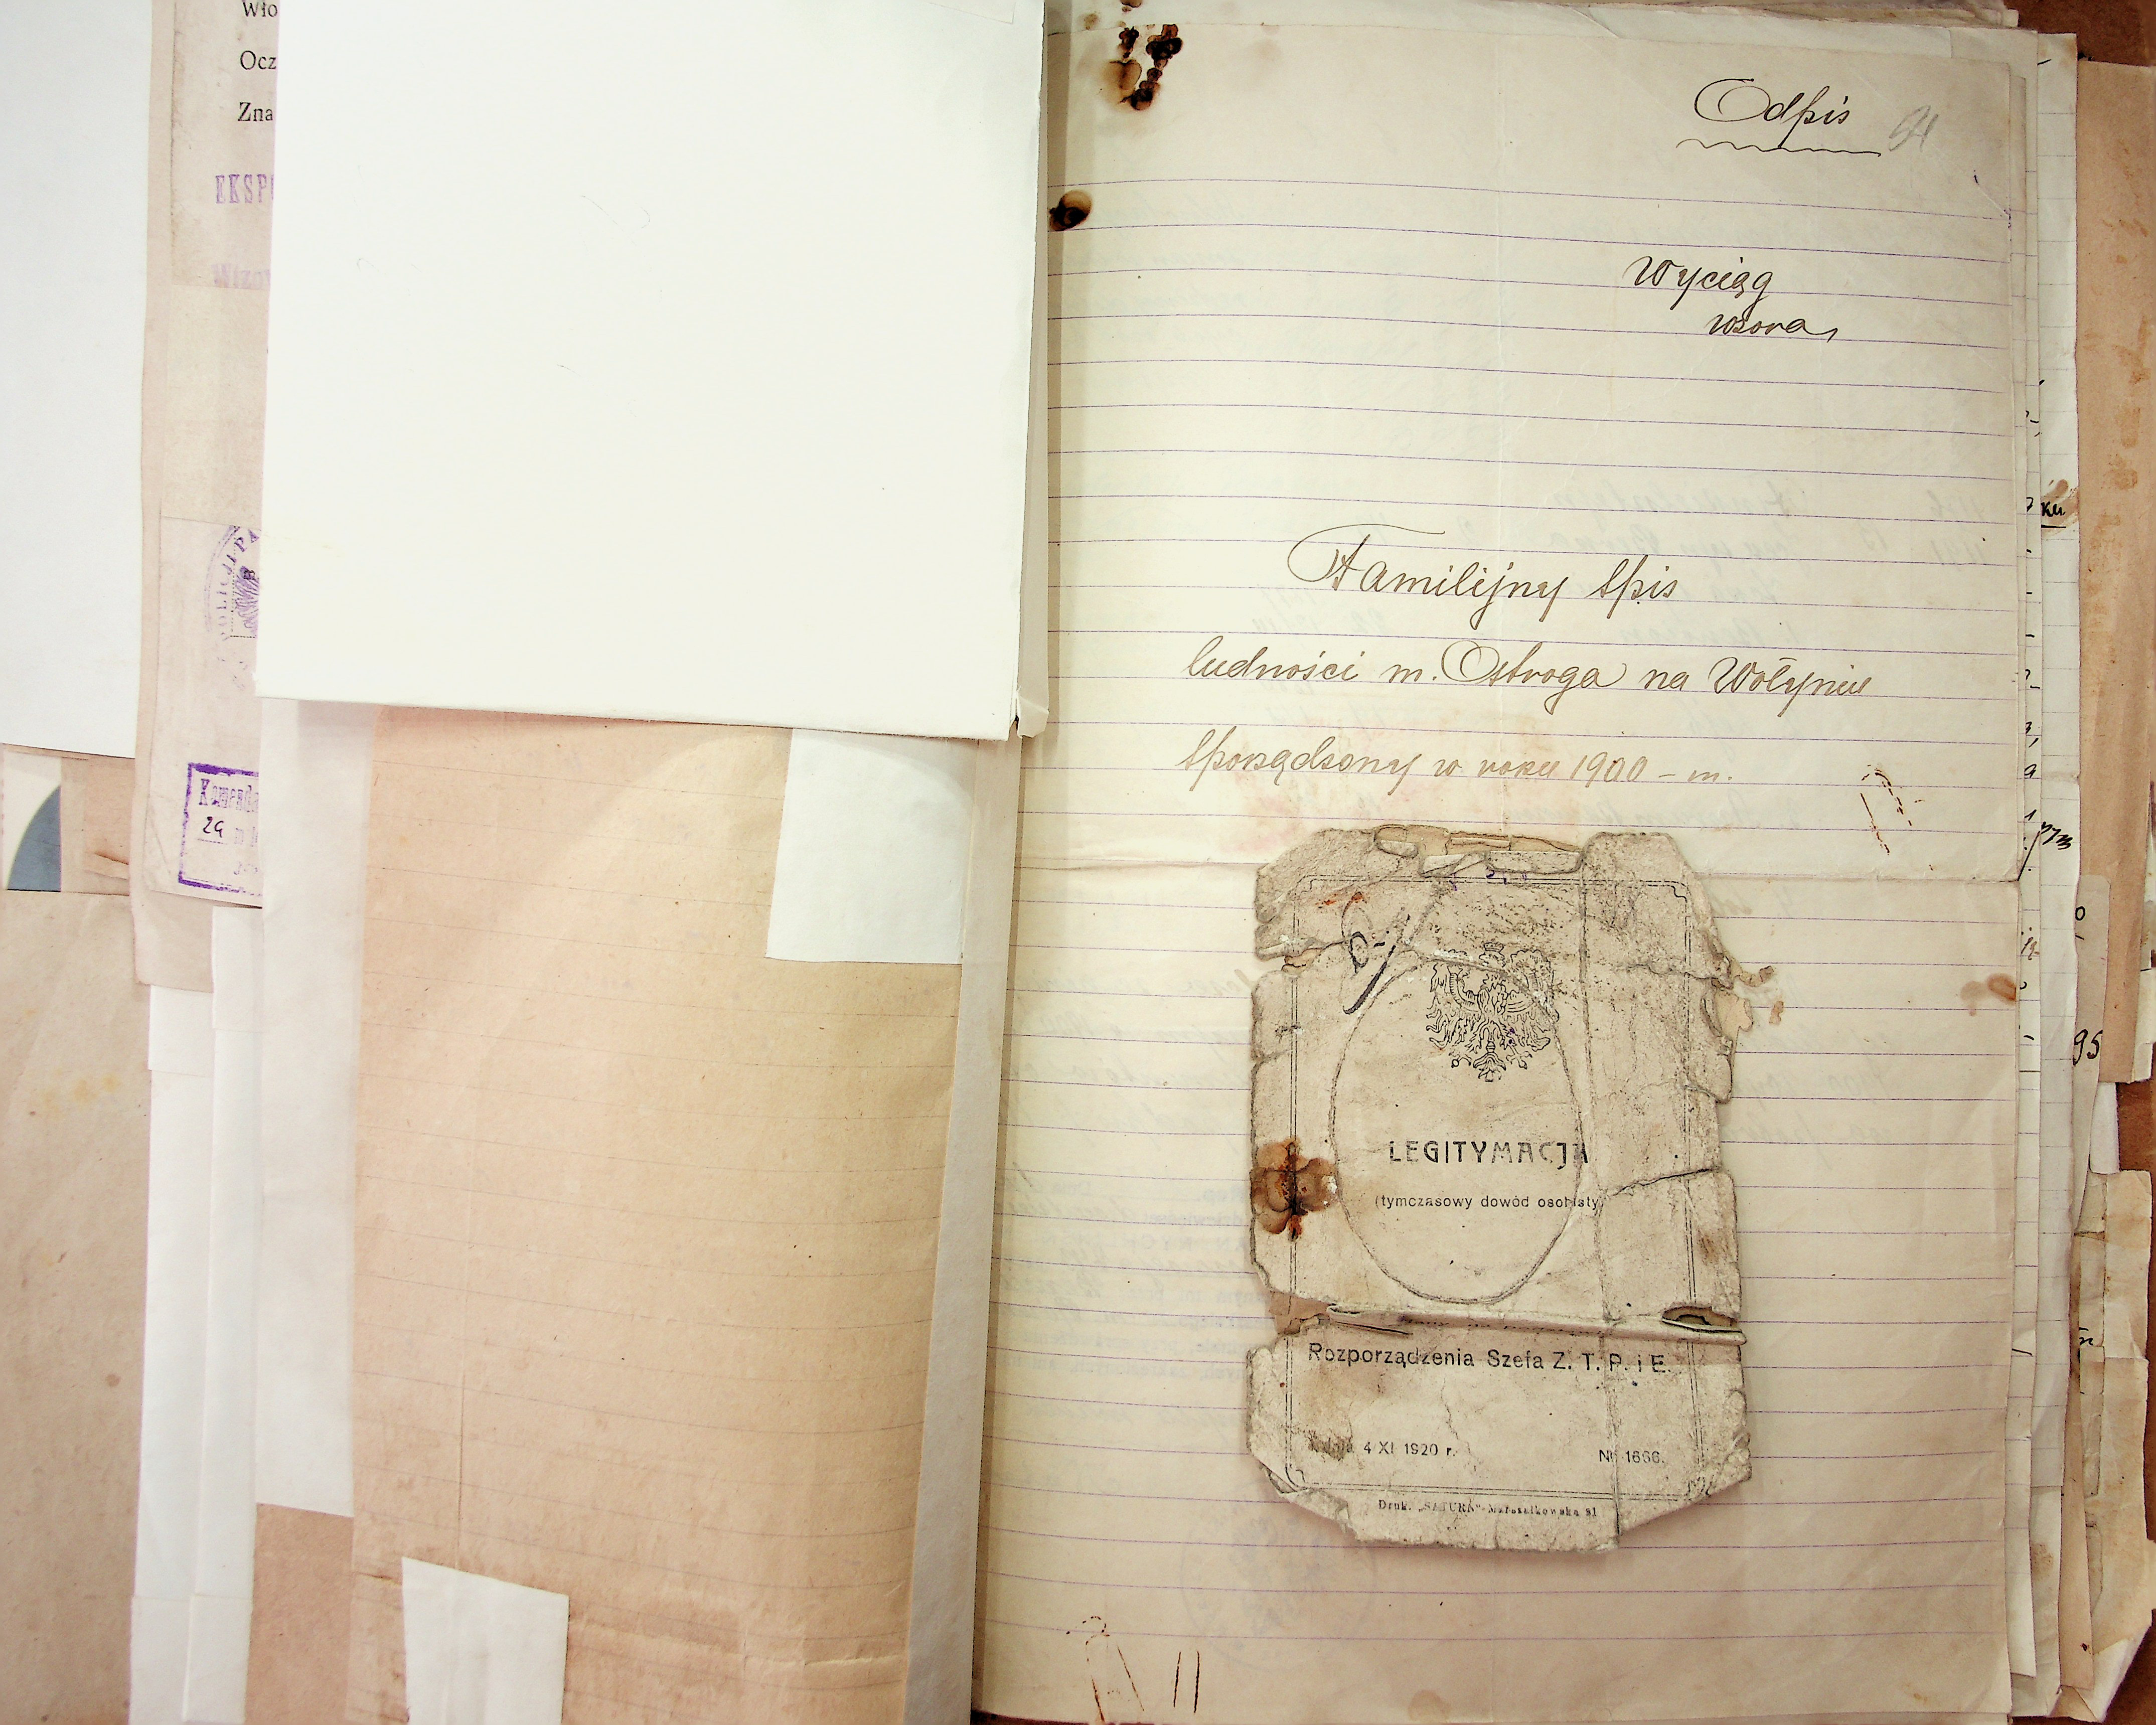 Wło
Ocz
Zna
EKSP
Wizo
POLICJI PA
Komenda
29
Odpis
91
Wyciąg
Familijny Spis
ludności m. Ostroga na Wołyniu
Sporządzony w roku 1900 - m.
LEGITYMACJA
(tymczasowy dowód osobisty)
Rozporządzenia Szefa Z. T. P. i E.
4 XI 1920 r. Nr 1666.
Druk. „SATURN" Marszałkowska 91
ku
95